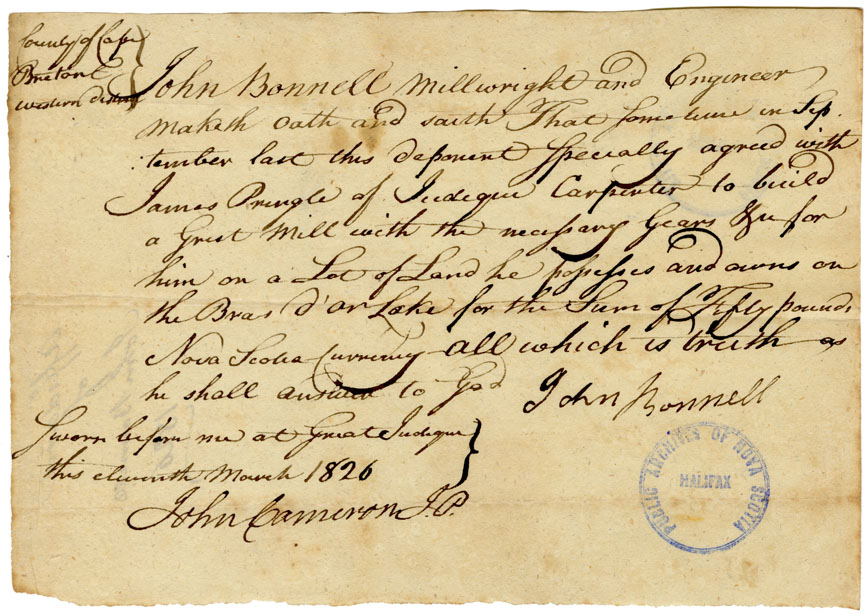 County of Cape
Breton
western district
John Bonnell Millwright and Engineer
maketh oath and saith That sometime in Sep.
:tember last this deponent specially agreed with
James Pringle of Judique Carpenter to build
a Grist Mill with the necessary Gears &c for
him on a Lot of Land he possesses and owns on
the Bras d'or Lake for the Sum of Fifty pounds
Nova Scotia Currency all which is truth as
he shall answer to God
John Bonnell
Sworn before me at Great Judique
this eleventh March 1826
John Cameron J.P.
PUBLIC ARCHIVES OF NOVA SCOTIA
HALIFAX